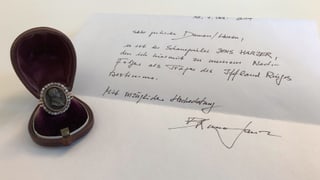 Sehr geehrte Damen/Herren,
es ist der Schauspieler JENS HARZER,
den ich hiermit zu meinem Nach-
folger als Träger des Iffland Ringes
bestimme.
Mit vorzüglicher Hochachtung
Bruno Ganz